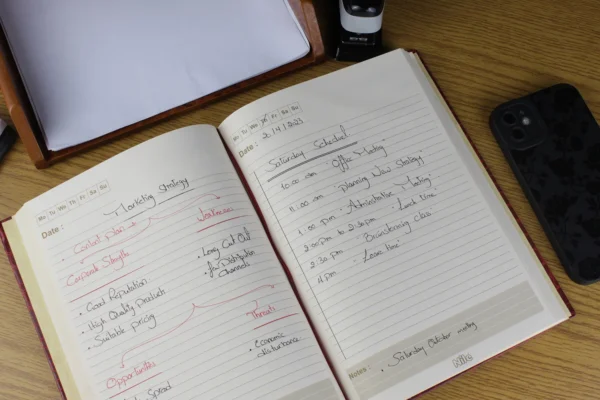 Mo Tu We Th Fr Sa Su
Date :
Marketing Strategy
Content plan →
Corporate Strength
Weakness
• Good Reputation
• High Quality products
• Suitable pricing
• Long Cut Out
• few Distribution
Channels
Opportunities
Threats
• Economic
disturbance
Spread
Mo Tu We Th Fr Sa Su
Date : 2/4/2023
Saturday Schedule
10:00 am "Office Meeting
11:00 am "Planning New Strategy
1:00 pm "Administration Meeting"
2:00 pm to 2:30 pm "Lunch time"
2:30 pm "Brainstorming class
4 pm "Leave time"
Notes :
• Saturday Outdoor meeting